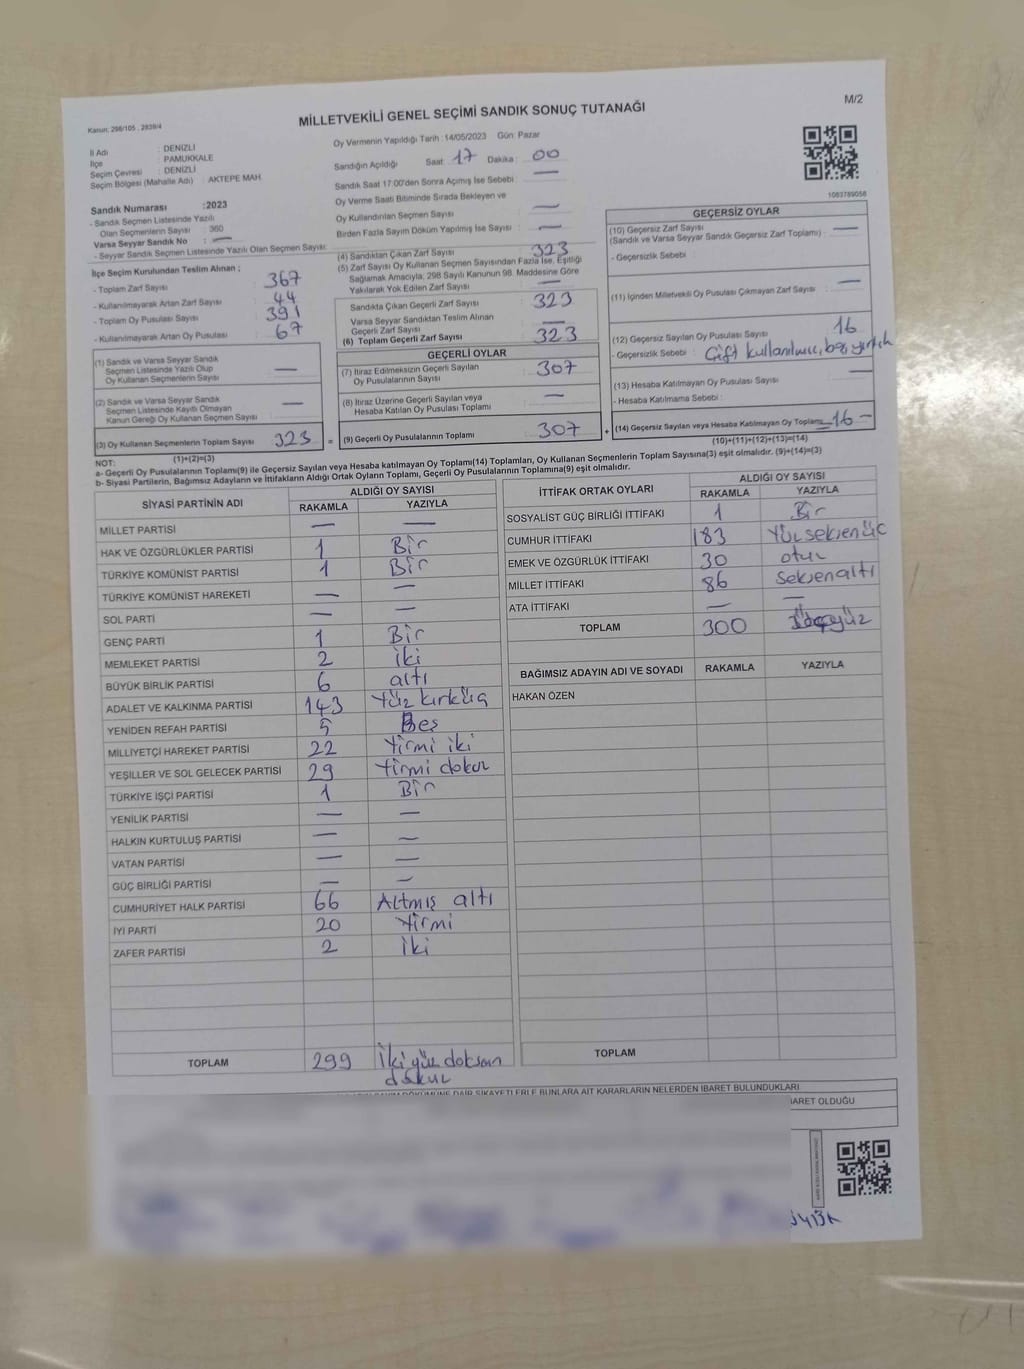 M/2
Kanun; 298/105 , 2839/4
MİLLETVEKİLİ GENEL SEÇİMİ SANDIK SONUÇ TUTANAĞI
İl Adı : DENİZLİ
İlçe : PAMUKKALE
Seçim Çevresi : DENİZLİ
Seçim Bölgesi (Mahalle Adı) : AKTEPE MAH
Sandık Numarası :2023
- Sandık Seçmen Listesinde Yazılı
Olan Seçmenlerin Sayısı : 360
Varsa Seyyar Sandık No : —
- Seyyar Sandık Seçmen Listesinde Yazılı Olan Seçmen Sayısı:
İlçe Seçim Kurulundan Teslim Alınan ;
- Toplam Zarf Sayısı : 367
- Kullanılmayarak Artan Zarf Sayısı : 44
- Toplam Oy Pusulası Sayısı : 391
- Kullanılmayarak Artan Oy Pusulası : 67
(1) Sandık ve Varsa Seyyar Sandık
Seçmen Listesinde Yazılı Olup
Oy Kullanan Seçmenlerin Sayısı : —
(2) Sandık ve Varsa Seyyar Sandık
Seçmen Listesinde Kayıtlı Olmayan
Kanun Gereği Oy Kullanan Seçmen Sayısı : —
(3) Oy Kullanan Seçmenlerin Toplam Sayısı : 323 =
(1)+(2)=(3)
Oy Vermenin Yapıldığı Tarih :14/05/2023 Gün: Pazar
Sandığın Açıldığı Saat: 17 Dakika : 00
Sandık Saat 17:00'den Sonra Açımış İse Sebebi : —
Oy Verme Saati Bitiminde Sırada Bekleyen ve
Oy Kullandırılan Seçmen Sayısı : —
Birden Fazla Sayım Döküm Yapılmış İse Sayısı : —
(4) Sandıktan Çıkan Zarf Sayısı : 323
(5) Zarf Sayısı Oy Kullanan Seçmen Sayısından Fazla İse, Eşitliği
Sağlamak Amacıyla, 298 Sayılı Kanunun 98. Maddesine Göre
Yakılarak Yok Edilen Zarf Sayısı : —
Sandıkta Çıkan Geçerli Zarf Sayısı : 323
Varsa Seyyar Sandıktan Teslim Alınan
Geçerli Zarf Sayısı : —
(6) Toplam Geçerli Zarf Sayısı : 323
GEÇERLİ OYLAR
(7) İtiraz Edilmeksizin Geçerli Sayılan
Oy Pusulalarının Sayısı : 307
(8) İtiraz Üzerine Geçerli Sayılan veya
Hesaba Katılan Oy Pusulası Toplamı : —
(9) Geçerli Oy Pusulalarının Toplamı : 307 +
1083789058
GEÇERSİZ OYLAR
(10) Geçersiz Zarf Sayısı
(Sandık ve Varsa Seyyar Sandık Geçersiz Zarf Toplamı) : —
- Geçersizlik Sebebi :
(11) İçinden Milletvekili Oy Pusulası Çıkmayan Zarf Sayısı : —
(12) Geçersiz Sayılan Oy Pusulası Sayısı : 16
- Geçersizlik Sebebi : Çift kullanılmış, boş, yırtık
(13) Hesaba Katılmayan Oy Pusulası Sayısı : —
- Hesaba Katılmama Sebebi :
(14) Geçersiz Sayılan veya Hesaba Katılmayan Oy Toplamı : 16 —
(10)+(11)+(12)+(13)=(14)
NOT:
a- Geçerli Oy Pusulalarının Toplamı(9) ile Geçersiz Sayılan veya Hesaba katılmayan Oy Toplamı(14) Toplamları, Oy Kullanan Seçmenlerin Toplam Sayısına(3) eşit olmalıdır. (9)+(14)=(3)
b- Siyasi Partilerin, Bağımsız Adayların ve İttifakların Aldığı Ortak Oyların Toplamı, Geçerli Oy Pusulalarının Toplamına(9) eşit olmalıdır.
SİYASİ PARTİNİN ADI ALDIĞI OY SAYISI
RAKAMLA YAZIYLA
MİLLET PARTİSİ — —
HAK VE ÖZGÜRLÜKLER PARTİSİ 1 Bir
TÜRKİYE KOMÜNİST PARTİSİ 1 Bir
TÜRKİYE KOMÜNİST HAREKETİ — —
SOL PARTİ — —
GENÇ PARTİ 1 Bir
MEMLEKET PARTİSİ 2 iki
BÜYÜK BİRLİK PARTİSİ 6 altı
ADALET VE KALKINMA PARTİSİ 143 Yüz kırküç
YENİDEN REFAH PARTİSİ 5 Beş
MİLLİYETÇİ HAREKET PARTİSİ 22 Yirmi iki
YEŞİLLER VE SOL GELECEK PARTİSİ 29 Yirmi dokuz
TÜRKİYE İŞÇİ PARTİSİ 1 Bir
YENİLİK PARTİSİ — —
HALKIN KURTULUŞ PARTİSİ — —
VATAN PARTİSİ — —
GÜÇ BİRLİĞİ PARTİSİ — —
CUMHURİYET HALK PARTİSİ 66 Altmış altı
İYİ PARTİ 20 Yirmi
ZAFER PARTİSİ 2 iki
TOPLAM 299 İkiyüz doksan
dokuz
İTTİFAK ORTAK OYLARI ALDIĞI OY SAYISI
RAKAMLA YAZIYLA
SOSYALİST GÜÇ BİRLİĞİ İTTİFAKI 1 Bir
CUMHUR İTTİFAKI 183 Yüzseksenüç
EMEK VE ÖZGÜRLÜK İTTİFAKI 30 otuz
MİLLET İTTİFAKI 86 seksenaltı
ATA İTTİFAKI — —
TOPLAM 300 üçyüz
BAĞIMSIZ ADAYIN ADI VE SOYADI RAKAMLA YAZIYLA
HAKAN ÖZEN
TOPLAM
DÖKÜMÜNE DAİR ŞİKAYETLERLE BUNLARA AİT KARARLARIN NELERDEN İBARET BULUNDUKLARI
BARET OLDUĞU